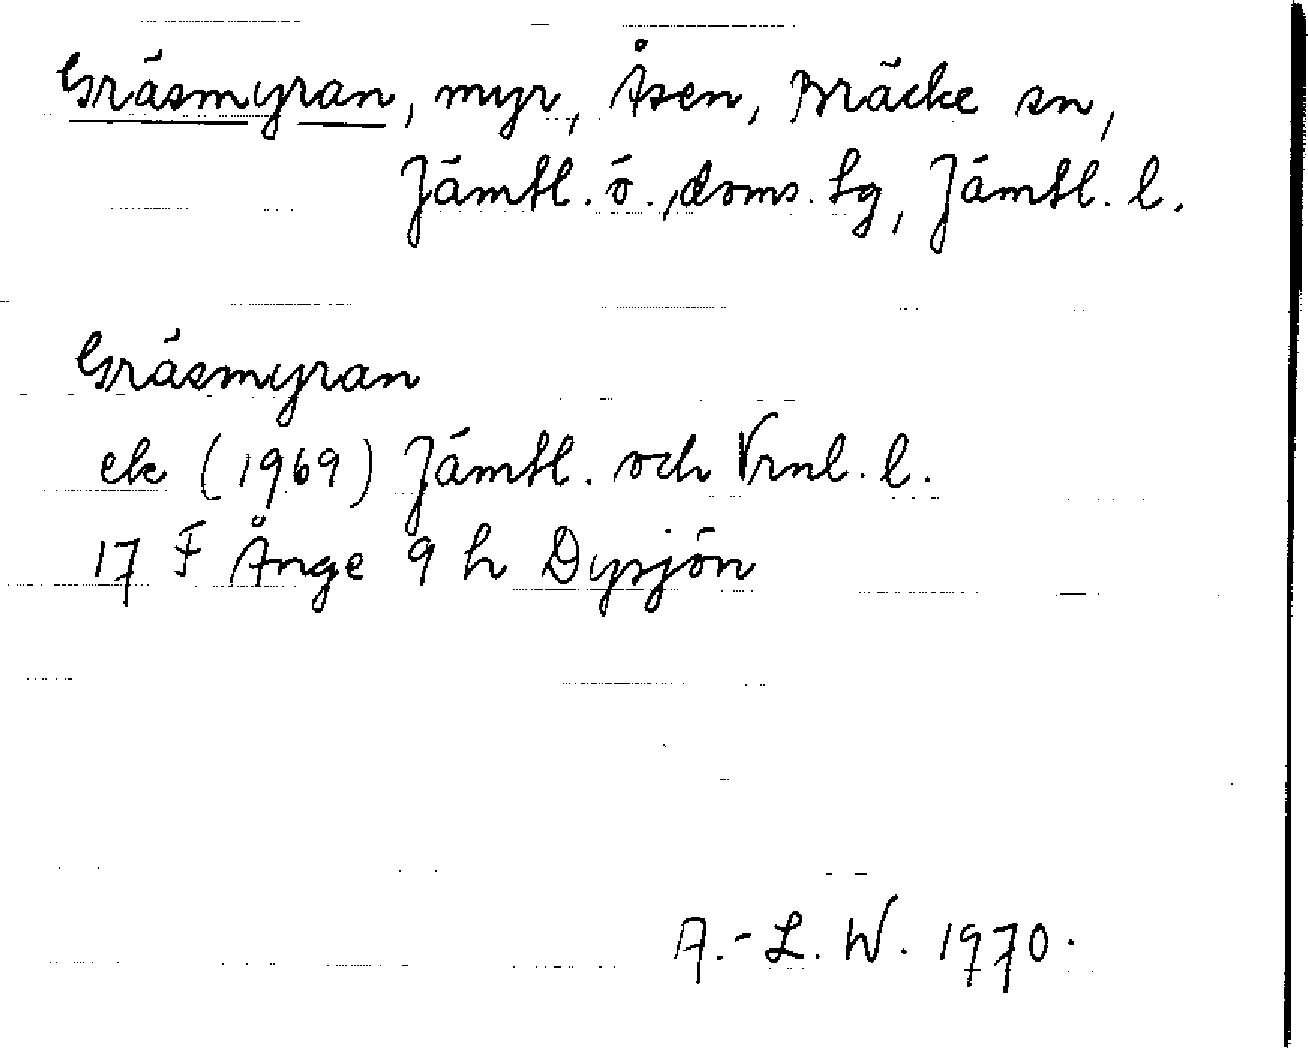 Gräsmyran, myr, Åsen, Bräcke sn,
Jämtl. ö. doms. tg, Jämtl. l.
Gräsmyran
ek (1969) Jämtl. och Vrnl. l.
17 F Ånge 9 h Dysjön
A.-L. W. 1970.